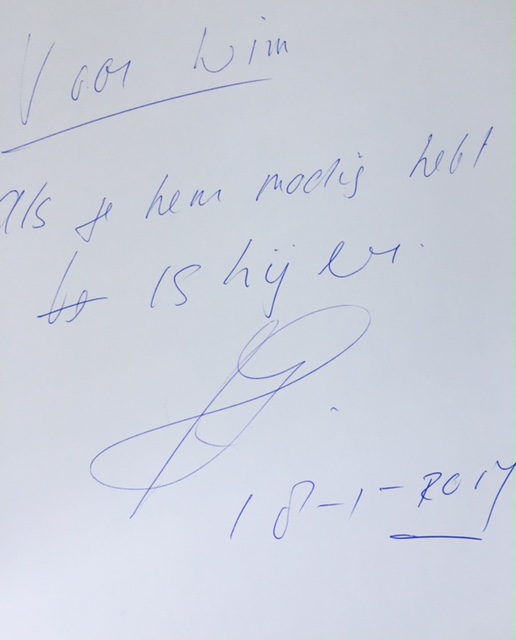 Voor Wim
als je hem nodig hebt
is hij er.
18-1-2017